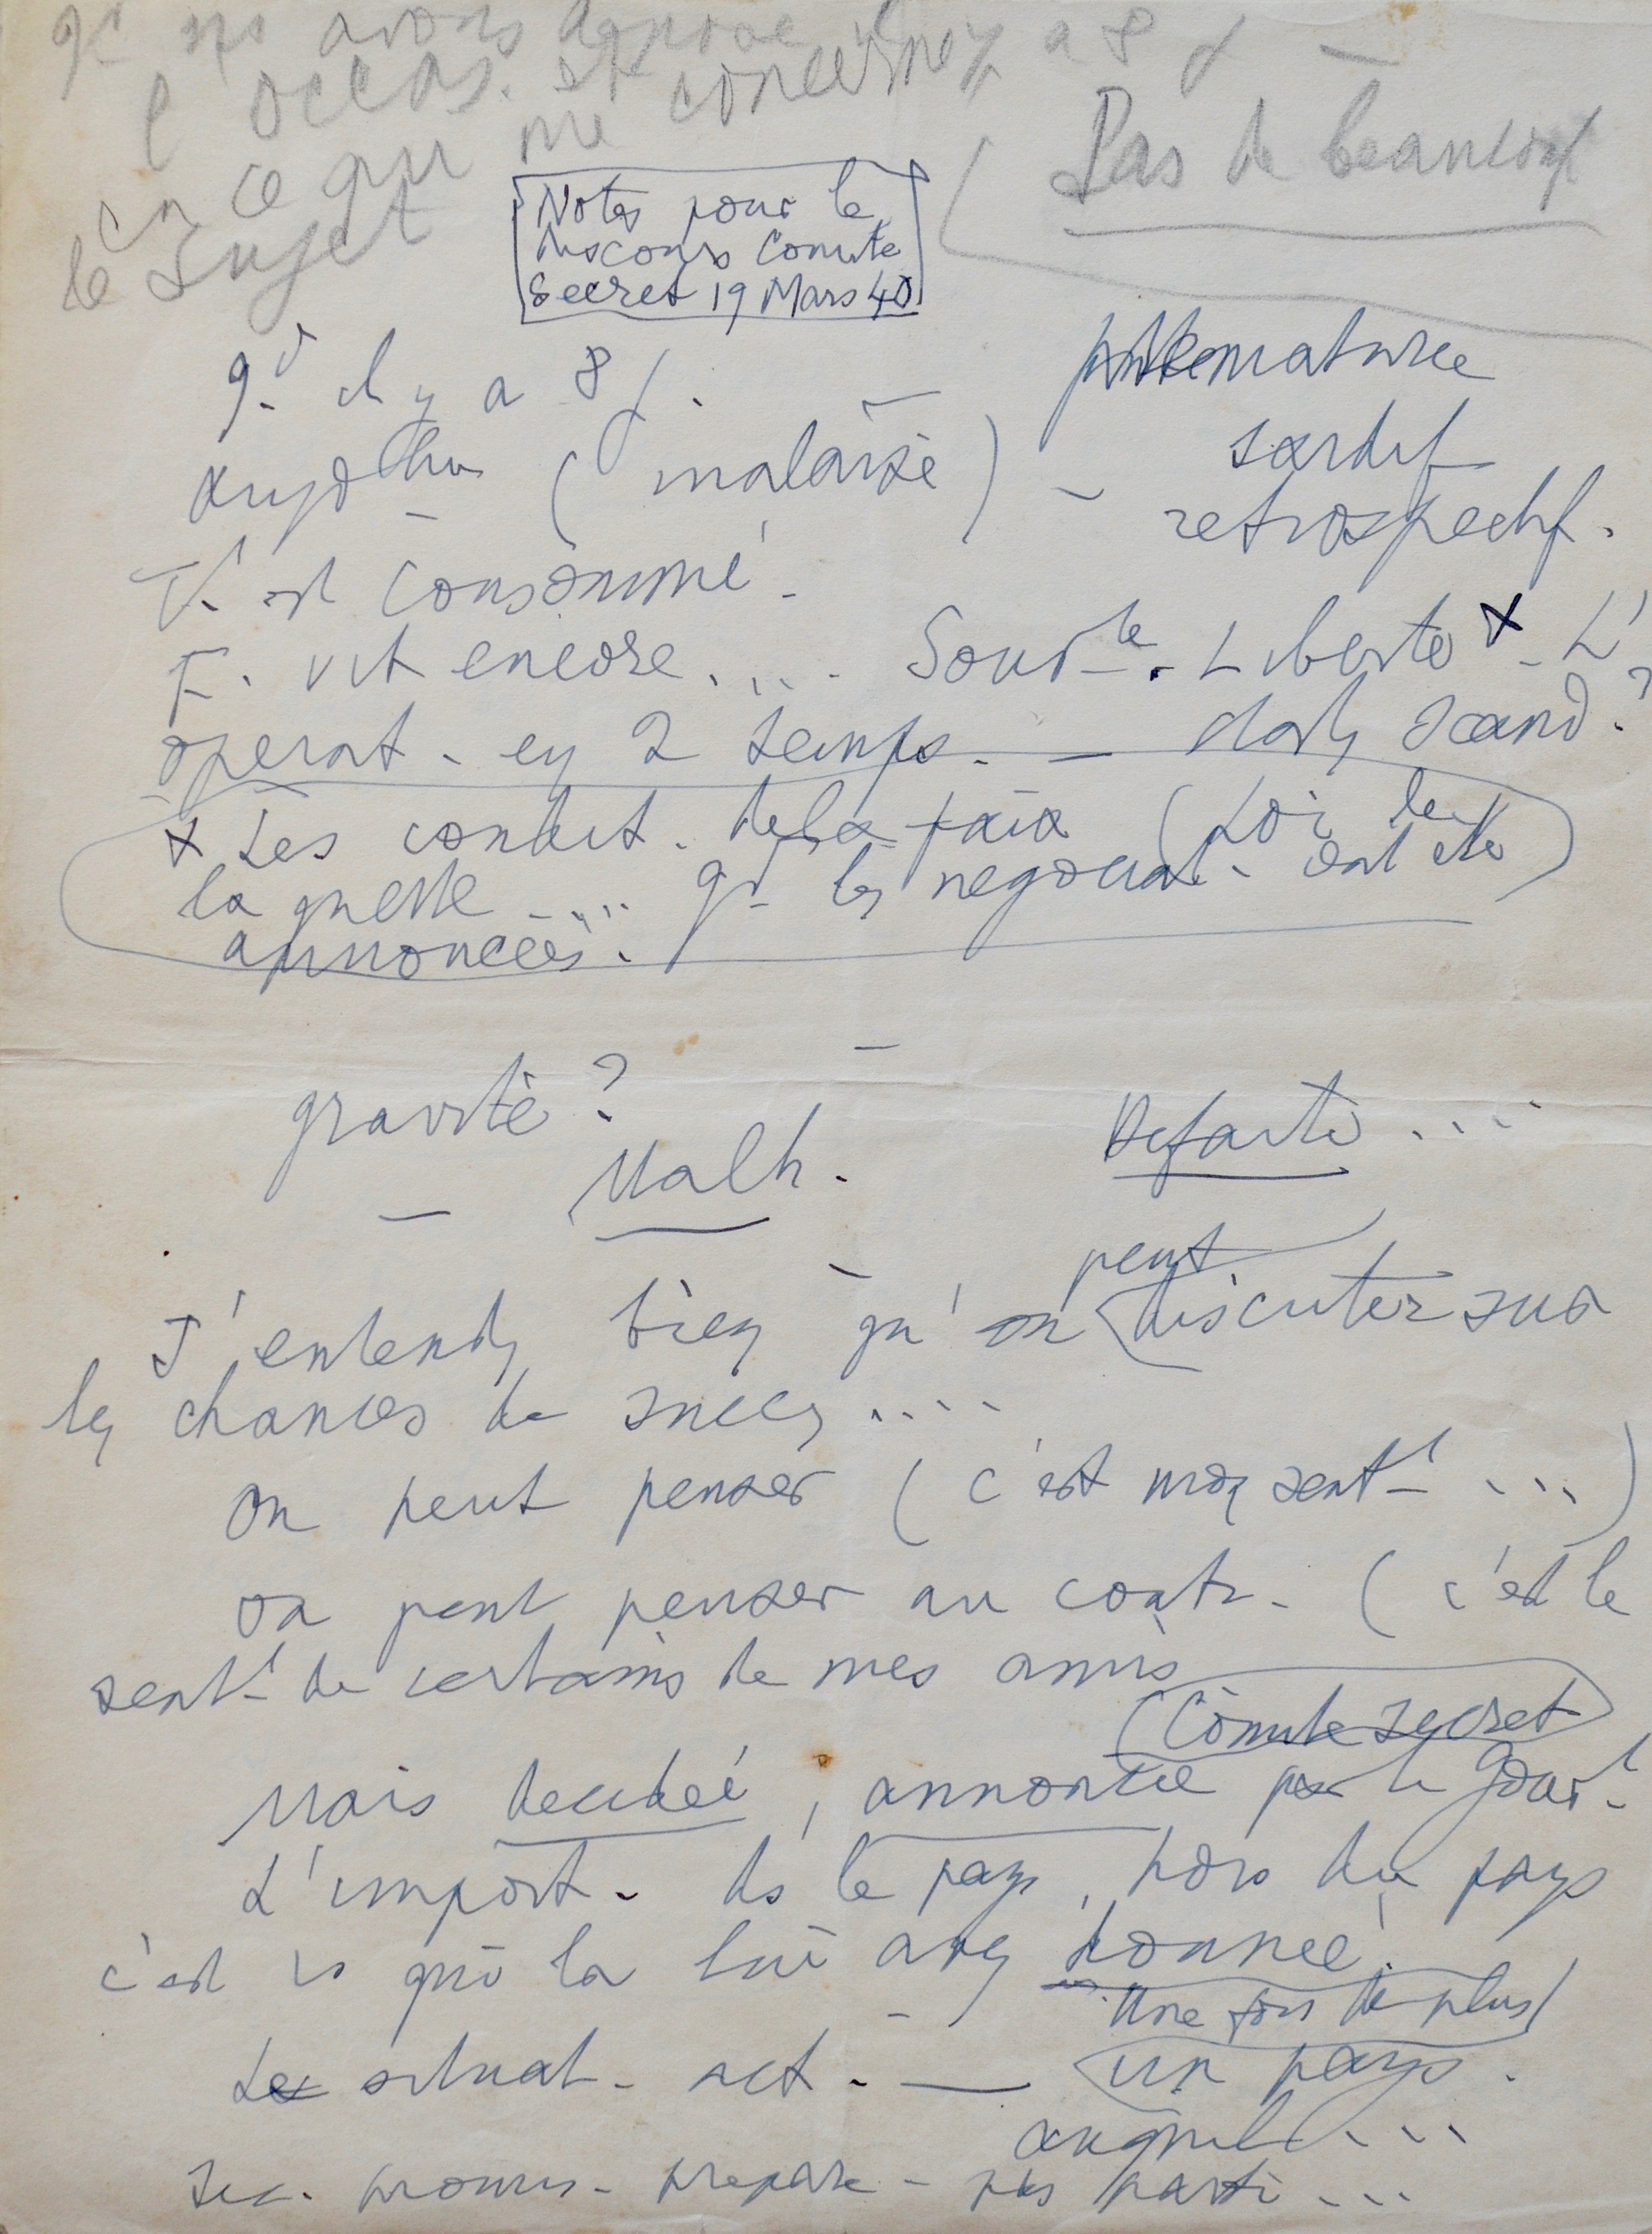 qd ns avons il y a 8 j –
l'occas.
en ce qui me concerne
le sujet
Pas de beaucoup
Notes pour le
discours Comité
Secret 19 Mars 40
qd il y a 8 j.
aujd'hui (malaise) – prématurée
tardif
retrospectif.
T. est consommé.
F. vit encore .... Liberté x – L'
operat. en 2 temps. — Scand.?
x Les condit. de la paix (Loi de
la guerre ..... qd les negociat. ont été
annoncées.
gravité ?
Malh. Defaite ...
peut
J'entends bien qu'on discuter sur
les chances de succès ....
On peut penser (c'est mon sentt ...)
on peut penser au contr. (c'est le
sentt de certains de mes amis
(Comité secret
Mais decidée, annoncée par le Gouvt
L'import. ds le pays, hors du pays
c'est ce qui la lui avez donnée.
Une fois de plus
La situat. act. — un pays.
auquel ...
sec. promis – préparé – pas parti ...